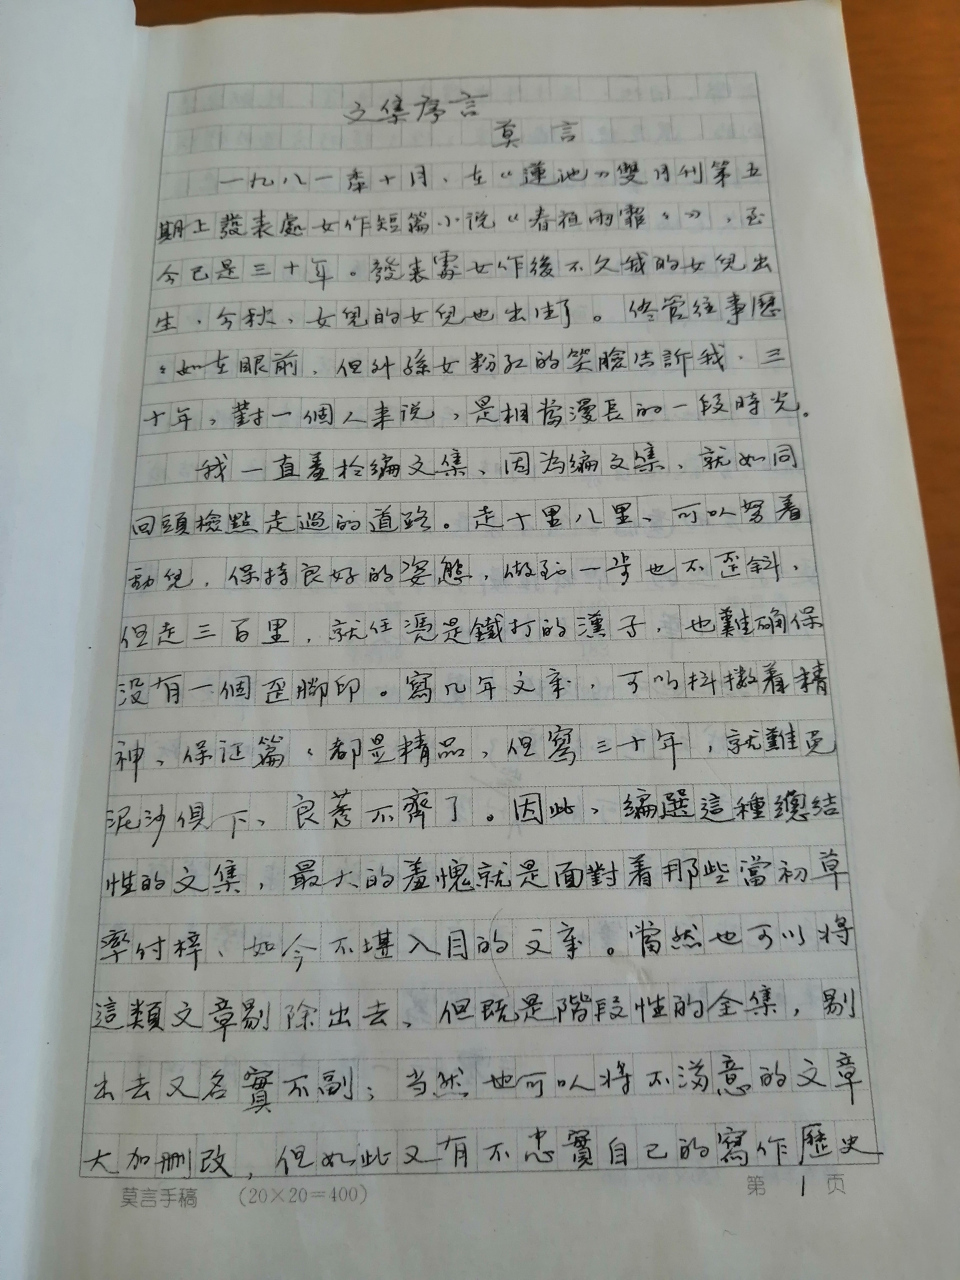 文集序言
莫言
一九八一年十月、在《蓮池》雙月刊第五
期上發表處女作短篇小说《春夜雨霏々》，至
今已是三十年。發表處女作後不久我的女兒出
生，今秋、女兒的女兒也出生了。儘管往事歷
々如在眼前，但外孫女粉红的笑臉告訴我，三
十年，對一個人来说，是相當漫長的一段時光。
我一直羞於編文集、因為編文集、就如同
回頭檢點走過的道路。走十里八里、可以努着
勁兒，保持良好的姿態，做到一步也不歪斜，
但走三百里，就任憑是鐵打的漢子，也難确保
没有一個歪腳印。寫几年文章，可以抖擞着精
神、保证篇々都是精品，但寫三十年，就難免
泥沙俱下、良莠不齊了。因此、編選這種總結
性的文集，最大的羞愧就是面對着那些當初草
率付梓、如今不堪入目的文章。當然也可以将
這類文章剔除出去，但既是階段性的全集，剔
出去又名實不副；当然也可以将不满意的文章
大加删改，但如此又有不忠實自己的寫作歷史
莫言手稿 （20×20=400） 第 1 页